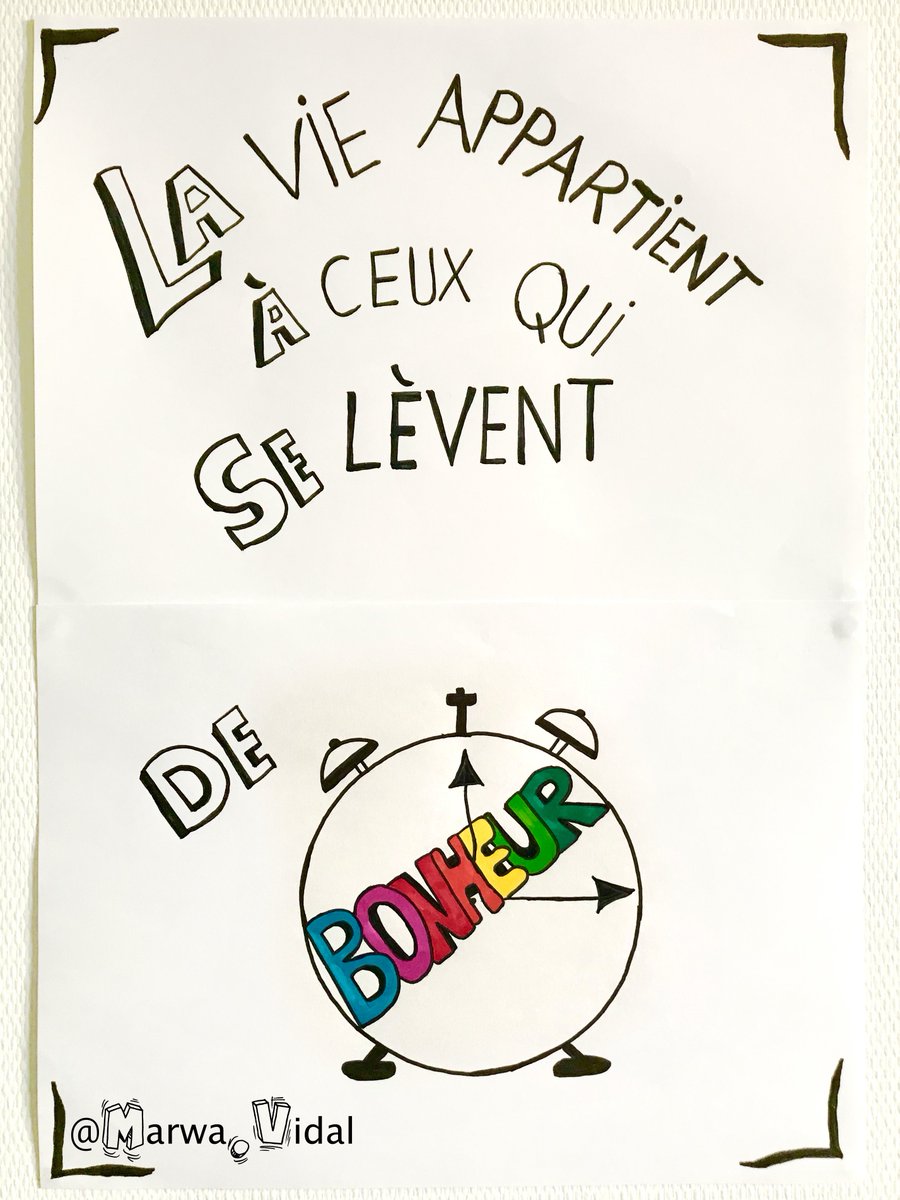 LA ViE APPARTiENT
À CEUX QUi
SE LÈVENT
DE
BONHEUR
@Marwa.Vidal